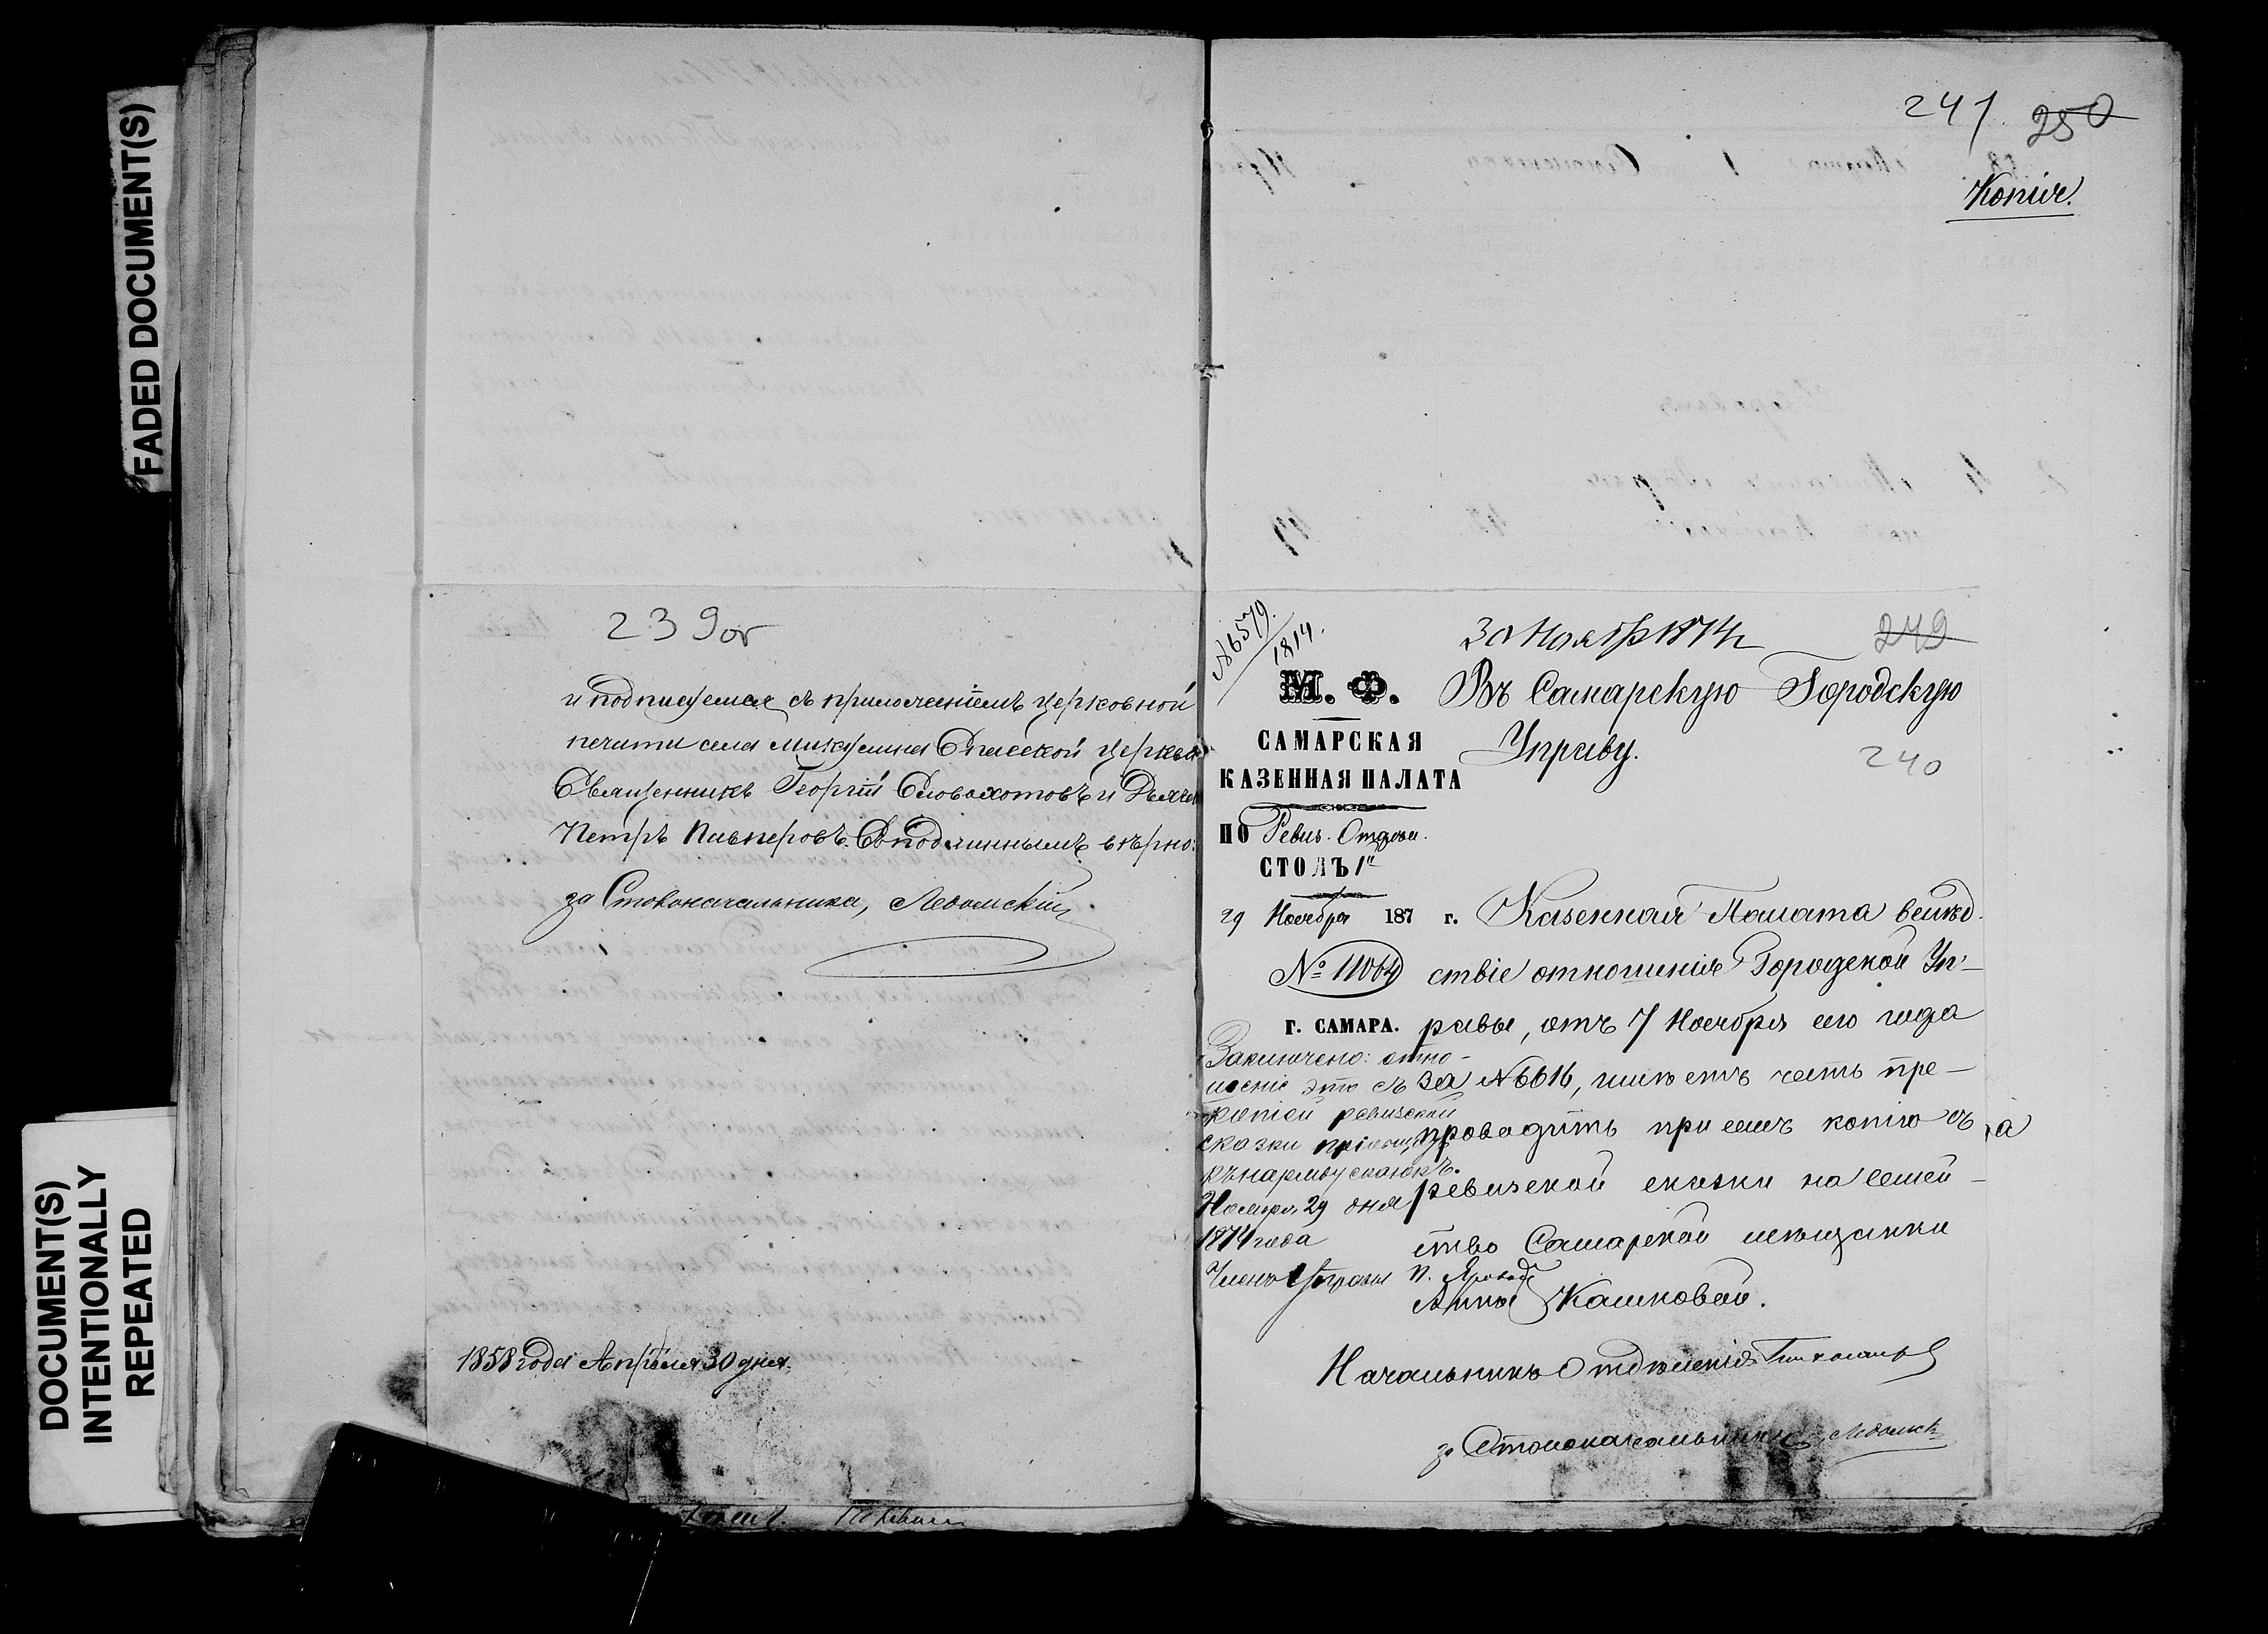 FADED DOCUMENT(S)
DOCUMENT(S)
INTENTIONALLY
REPEATED
239об
и подписуемся съ приложеніемъ церковной
печати села Микулина Спасской церкви
Священникъ Георгій Словохотовъ и Дьячек
Петръ Пивперовъ. Съ подлиннымъ вѣрно:
за Столоначальника, Ледомскій
1858 года Апрѣля 30 дня.
241 250
Копія.
№ 6579
1814.
30 Ноябр 1874 г
249
М. Ф.
Въ Самарскую Городскую
Управу.
240
САМАРСКАЯ
КАЗЕННАЯ ПАЛАТА
ПО Ревиз. Отдѣл.
СТОЛЪ 1й
29 Ноября 187 г.
№ 11064
Г. САМАРА.
Казенная Палата вслѣд-
ствіе отношенія Городской Уп-
равы, отъ 7 Ноября сего года
за № 6616, имѣетъ честь пре-
проводить при семъ копію съ
ревизской сказки на семей-
ство Самарской мѣщанки
Анны Кашковой.
Заключено: отно-
шеніе это съ
копіей ревизской
сказки пріобщить
къ нарływу сказокъ.
Ноября 29 дня
1874 года
Членъ Управы П.
Начальникъ Отдѣленія
за Столоначальника Ледомск